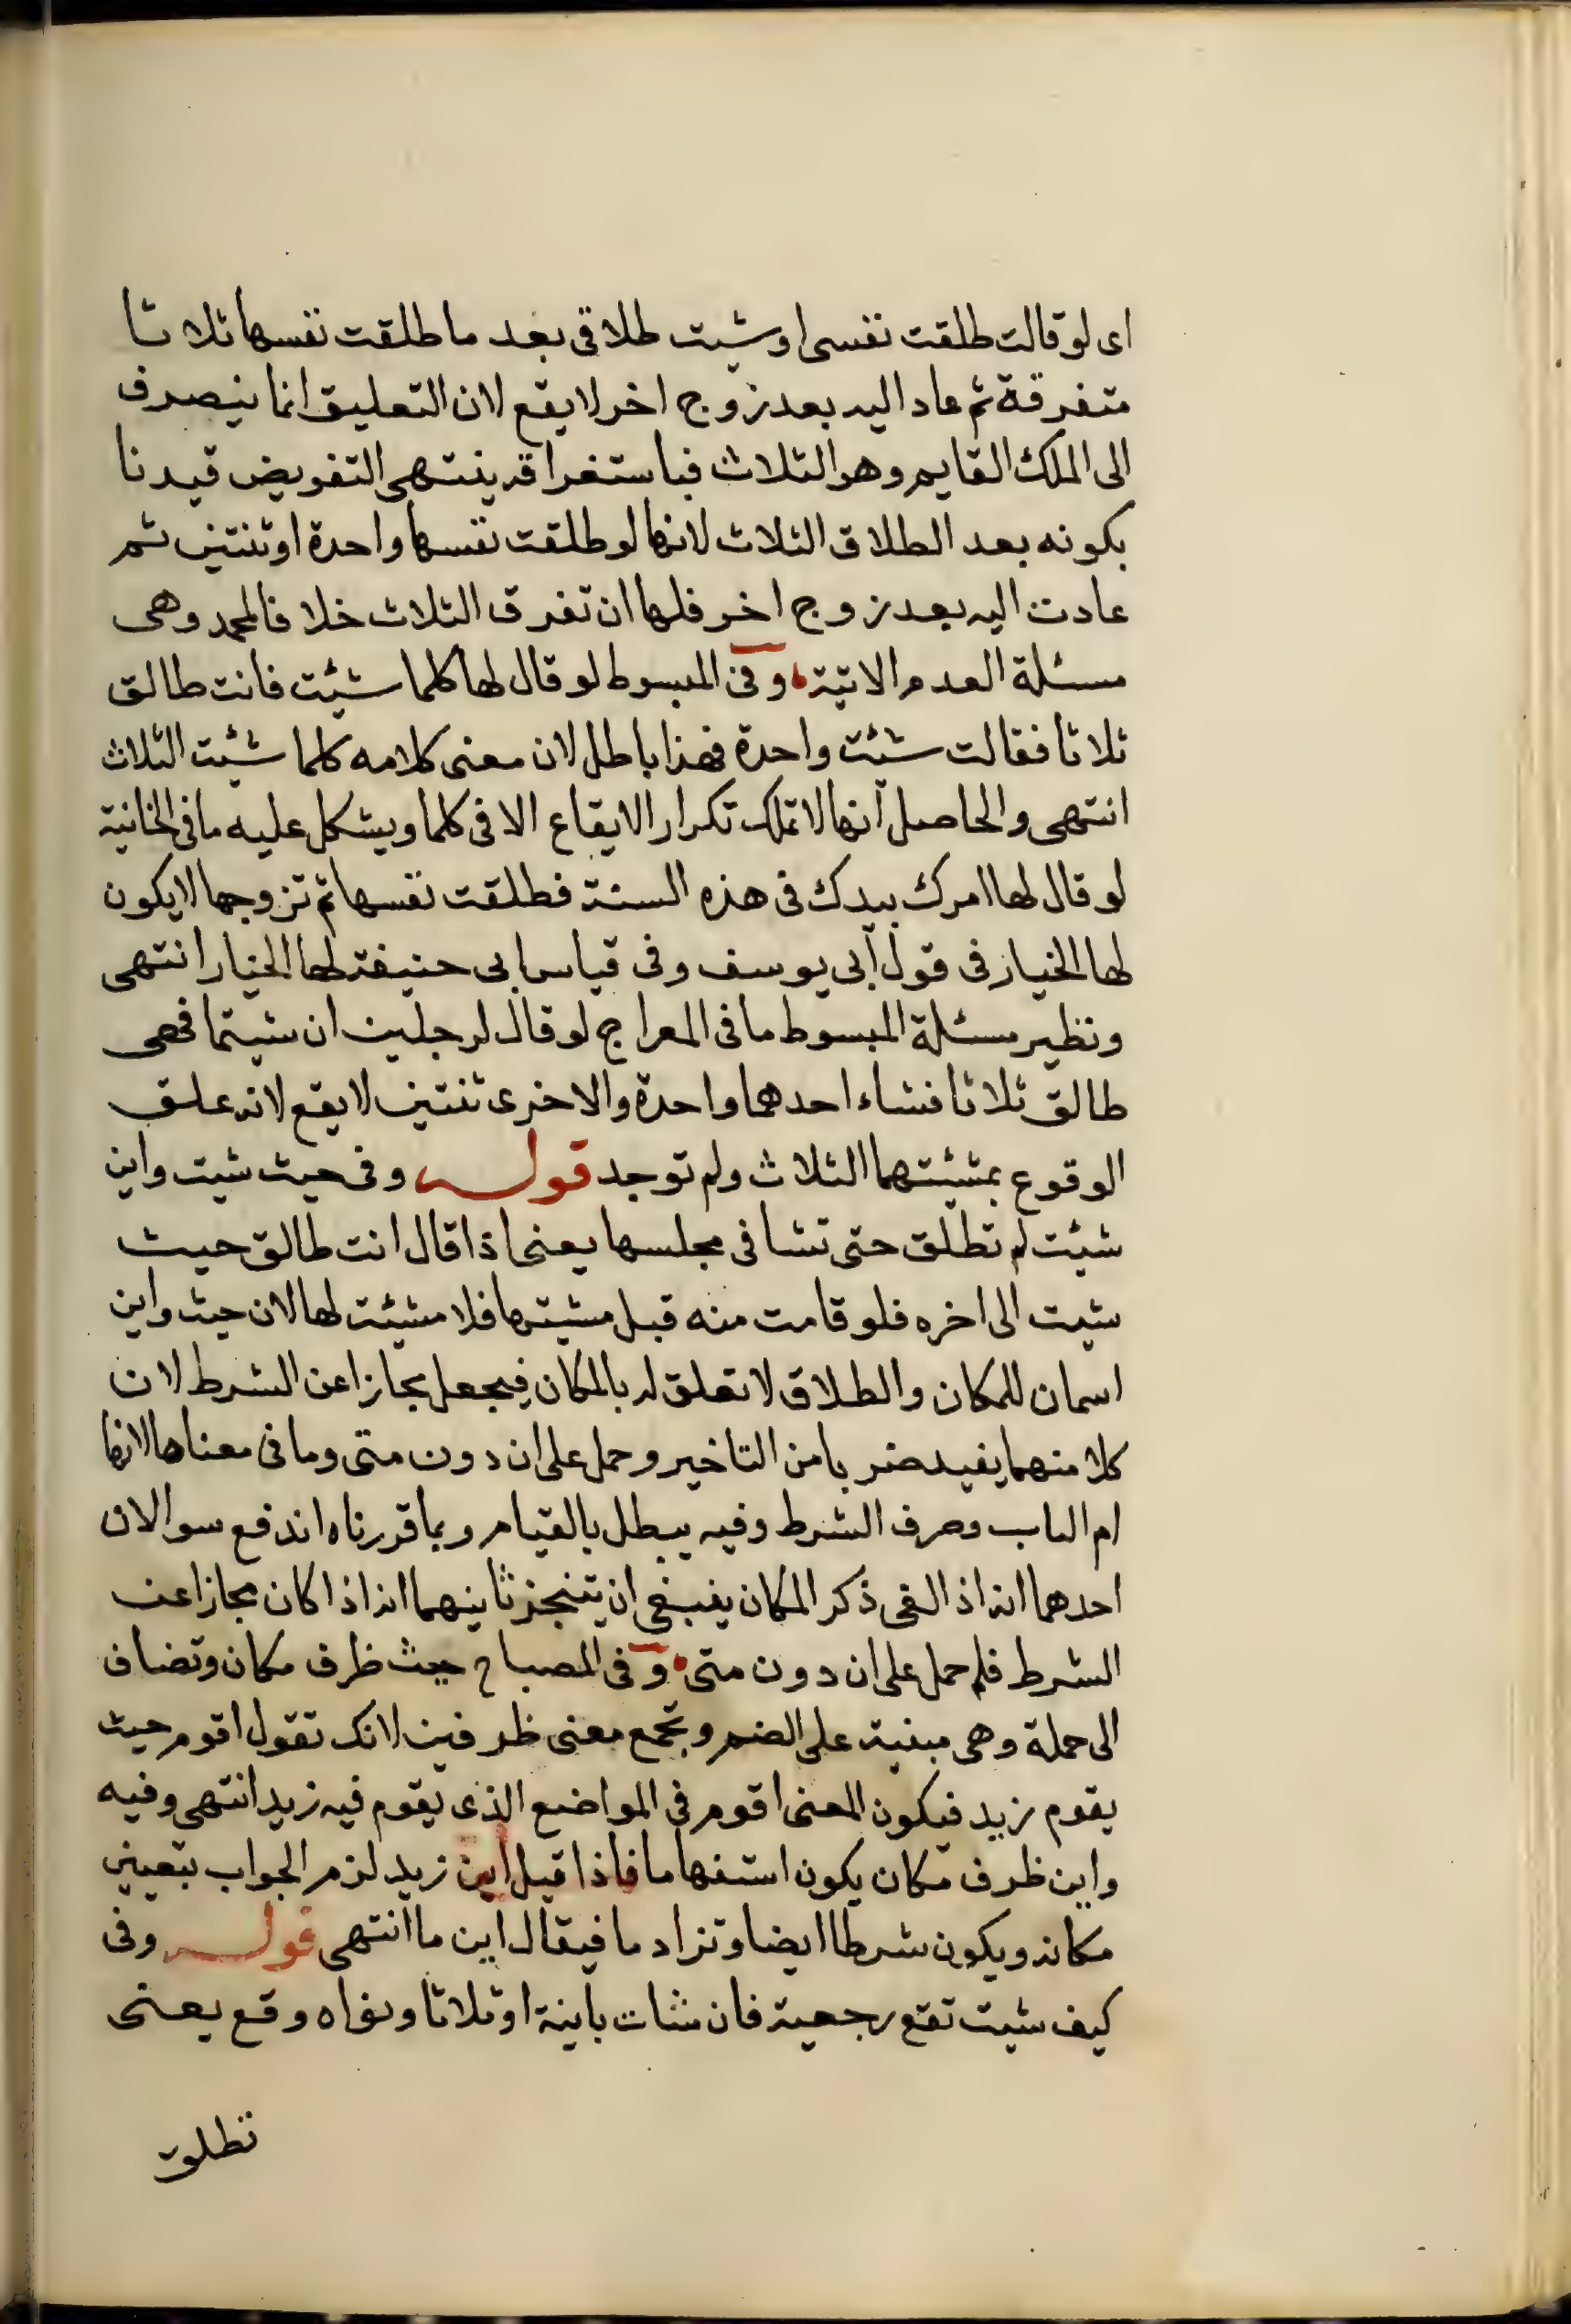 اى لو قالت طلقت نفسى او شيت طلاقى بعد ما طلقت نفسها ثلاثا
متفرقة ثم عاد اليه بعد زوج اخر لا يقع لان التعليق انما ينصرف
الى الملك القايم وهو الثلاث فباستغراقه ينتهى التفويض قيدنا
بكونه بعد الطلاق الثلاث لانها لو طلقت نفسها واحدة او ثنتين ثم
عادت اليه بعد زوج اخر فلها ان تفرق الثلاث خلافا لمحمد وهى
مسئلة الهدم الاتية وفى المبسوط لو قال لها كلما شئت فانت طالق
ثلاثا فقالت شئت واحدة فهذا باطل لان معنى كلامه كلما شئت الثلاث
انتهى والحاصل انها لا تملك تكرار الايقاع الا فى كلما ويشكل عليه ما فى الخانية
لو قال لها امرك بيدك فى هذه السنة فطلقت نفسها ثم تزوجها لا يكون
لها الخيار فى قول ابى يوسف وفى قياس ابى حنيفة لها الخيار انتهى
ونظير مسئلة المبسوط ما فى المعراج لو قال لرجلين ان شيتما فهى
طالق ثلاثا فشاء احدهما واحدة والاخرى ثنتين لا يقع لانه علق
الوقوع بمشئتهما الثلاث ولم توجد قوله وفى حيث شيت واين
شئت لم تطلق حتى تشا فى مجلسها يعنى اذا قال انت طالق حيث
شيت الى اخره فلو قامت منه قبل مشيتها فلا مشئة لها لان حيث واين
اسمان للمكان والطلاق لا تعلق له بالمكان فيجعل مجازا عن الشرط لان
كلا منهما يفيد ضربا من التاخير وحمل على ان دون متى وما فى معناها لانها
ام الباب وحرف الشرط وفيه يبطل بالقيام وبما قررناه اندفع سوالان
احدهما انه اذ الغى ذكر المكان ينبغى ان يتنجز ثانيهما انه اذا كان مجازا عن
الشرط فلم حمل على ان دون متى وفى المصباح حيث ظرف مكان وتضاف
الى جملة وهى مبنية على الضم وتجمع معنى ظرفين لانك تقول اقوم حيث
يقوم زيد فيكون المعنى اقوم فى المواضع الذى يقوم فيه زيد انتهى وفيه
واين ظرف مكان يكون استفهاما فاذا قيل اين زيد لزم الجواب بتعيين
مكانه ويكون شرطا ايضا وتزاد ما فيقال اين ما انتهى قوله وفى
كيف شيت تقع رجعية فان شات باينة او ثلاثا ونواه وقع يعنى
تطلق